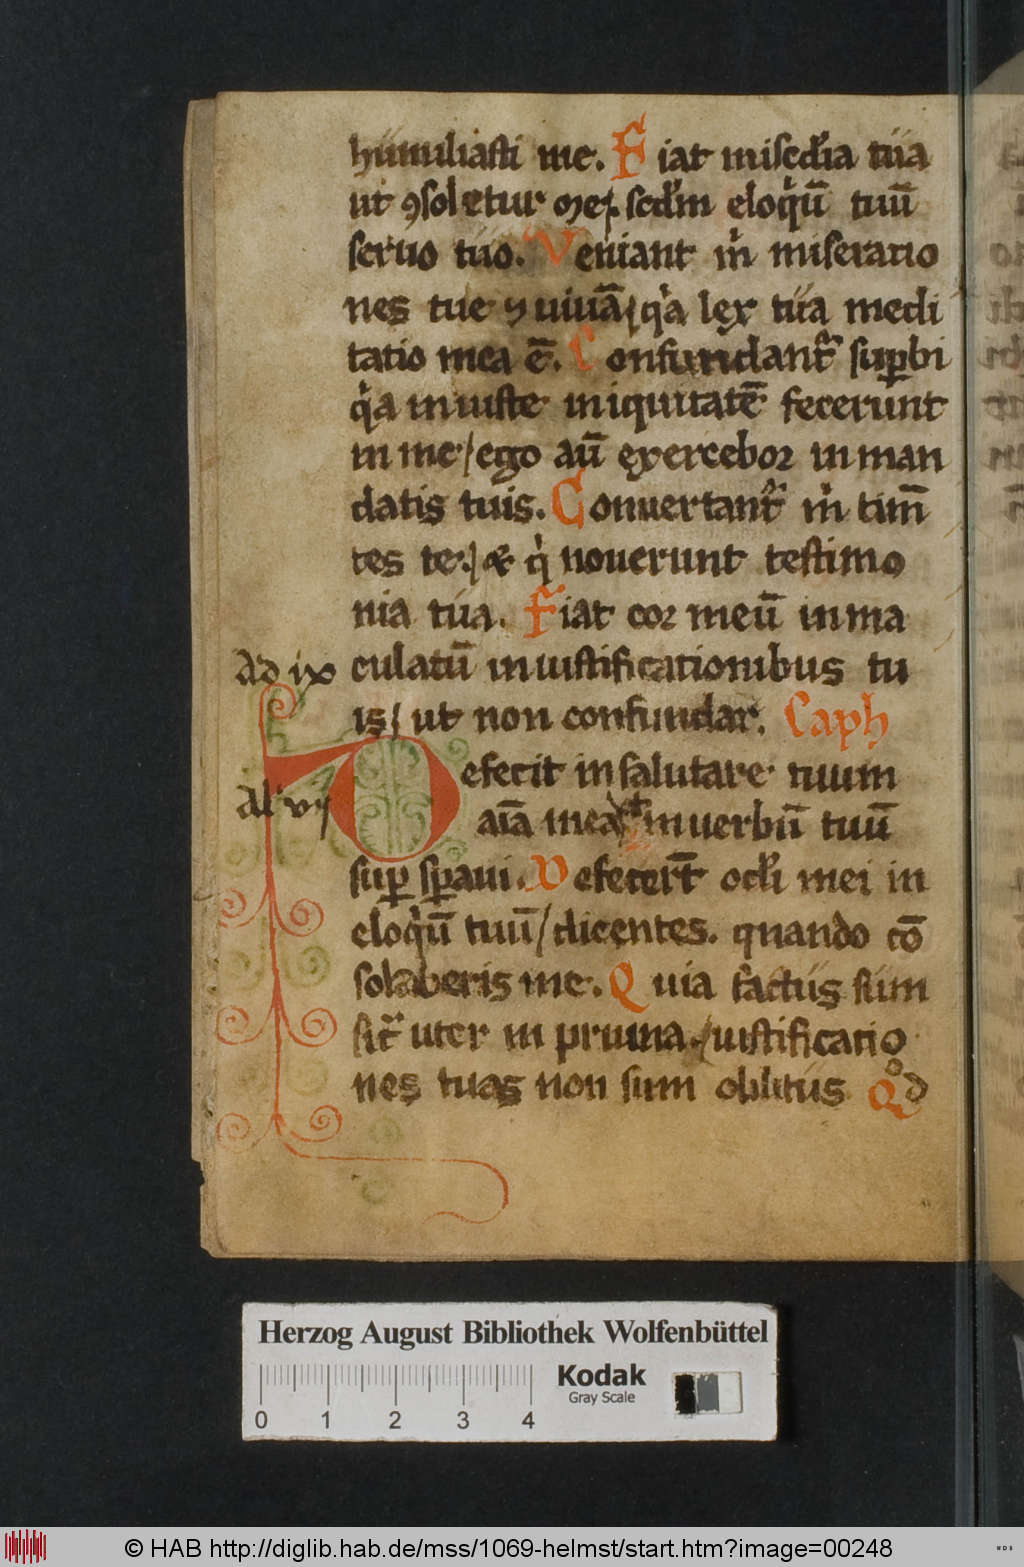 humiliasti me. Fiat misedia tua
ut ꝯsoletur me ẜ scdm eloqͥū tuū
seruo tuo. Veniant mͥ miseratio
nes tue ⁊ uiuā / qͥa lex tua medi
tatio mea ē. Confundantᷣ suꝑbi
qͥa iniuste iniquitatē fecerunt
in me / ego aū exercebor in man
datis tuis. Conuertantᷣ mͥ timn̄
tes te / & qͥ nouerunt testimo
nia tua. Fiat cor meū in ma
Ad ix culatū in iustificationibus tu
is / ut non confundar. Caph
Defecit in salutare tuum
Al' vi aīa mea & in uerbū tuū
suꝑ sꝑaui. Defecert̄ ocl'i mei in
eloqͥū tuū / dicentes. quando cō
solaberis me. Quia factus sum
sicͭ uter in pruina / iustificatio
nes tuas non sum oblitus Qͦd
Herzog August Bibliothek Wolfenbüttel
Kodak
Gray Scale
0 1 2 3 4
© HAB http://diglib.hab.de/mss/1069-helmst/start.htm?image=00248